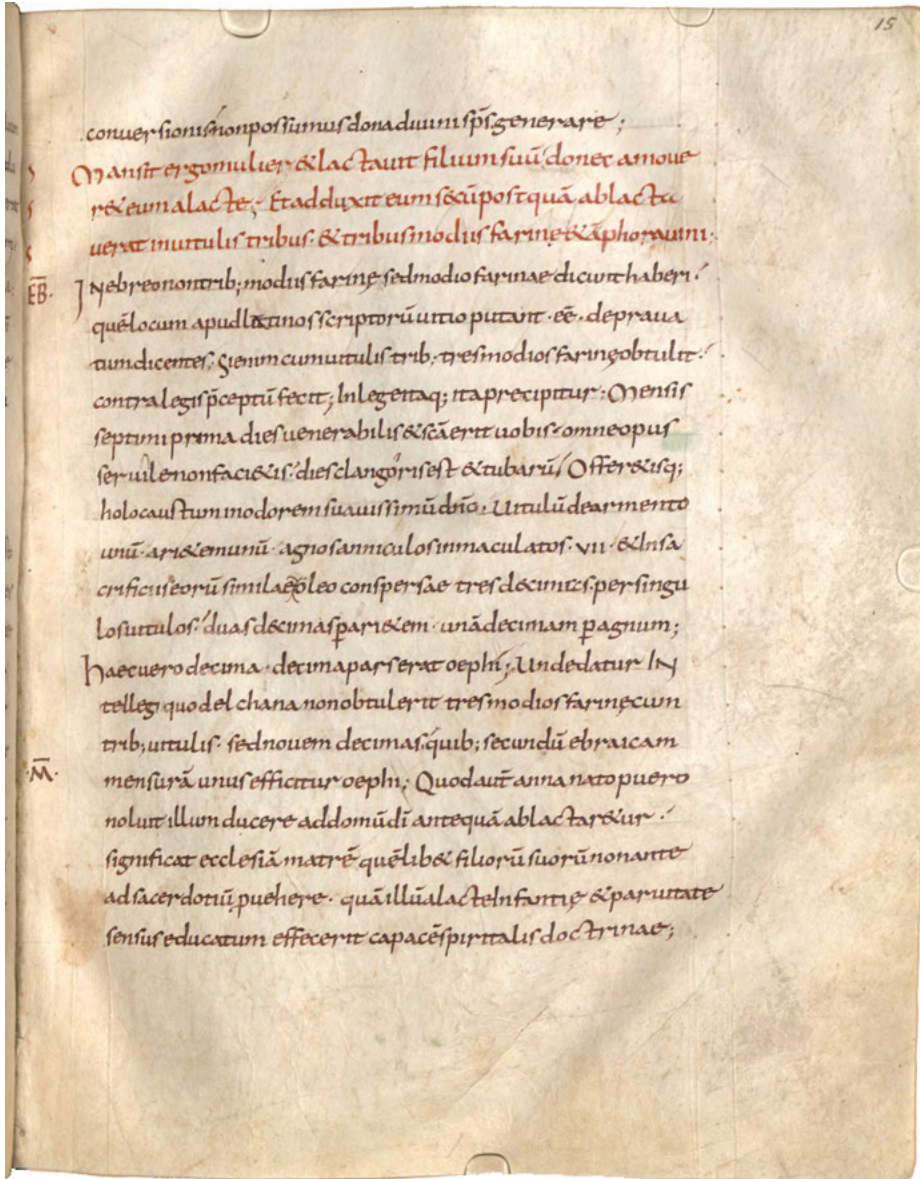 15
conversionis non possumus dona divini sp̄s generare;
Mansit ergo mulier & lactavit filium suū donec amove
r&eum a lacte; Et adduxit eum secū postquā ablacta
verat in vitulis tribus · & tribus modiis farinę & āphora vini;
EB̄ · IN ebreo non trib; modiis farinę sed modio farinae dicunt haberi ·
quē locum apud latinos scriptorū vitio putant · eē · deprava
tum dicentes; Si enim cum vitulis trib; tres modios farinę obtulit ·
contra legis p̄ceptū fecit; In lege itaq; ita precipitur; Mensis
septimi prima dies venerabilis & scā erit vobis · omne opus
servile non faci&is · dies clangoris est & tubarū; Offer&isq;
holocaustum in odorem suavissimū dn̄o · Vitulū de armento
unū · ari&em unū · agnos anniculos inmaculatos · VII · & In sa
crificiis eorū similae oleo conspersae tres decimas per singu
los vitulos · duas decimas p̱ ari&em · unā decimam p̱ agnum;
haec vero decima · decima pars erat oephi; Unde datur IN
tellegi quod elchana non obtulerit tres modios farinę cum
trib; vitulis · sed novem decimas · quib; secundū ebraicam
· M̄ · mensurā unus efficitur oephi; Quod aut̄ anna nato puero
noluit illum ducere ad domū dī antequā ablactar&ur ·
significat ecclesiā matrē quēlib& filiorū suorū non ante
ad sacerdotiū ꝓvehere · quā illū a lacte Infantię & parvitate
sensus educatum effecerit capacē spiritalis doctrinae;